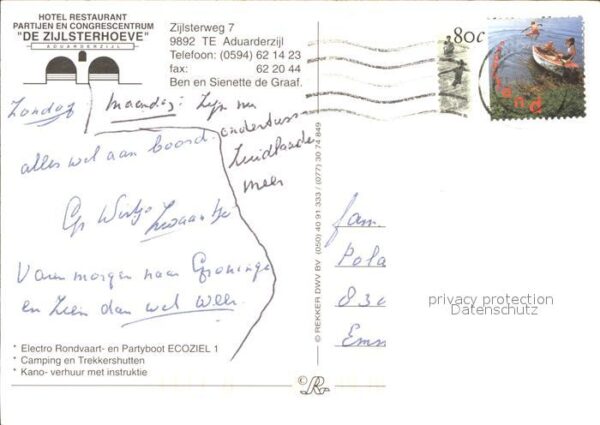 HOTEL RESTAURANT
PARTIJEN EN CONGRESCENTRUM
"DE ZIJLSTERHOEVE"
ADUARDERZIJL
Zijlsterweg 7
9892 TE Aduarderzijl
Telefoon: (0594) 62 14 23
fax: 62 20 44
Ben en Sienette de Graaf.
80c
Zondag
maandag: Zijn nu
ondertussen
Zuidlaarder
meer
alles wel aan boord.
Gr Wietje
Zwaantje
Varen morgen naar Groningen
en Zien dan wel weer.
* Electro Rondvaart- en Partyboot ECOZIEL 1
* Camping en Trekkershutten
* Kano- verhuur met instruktie
© REKKER DWV BV (050) 40 91 333 / (077) 30 74 849
© R
fam.
Pola
830
Emm
privacy protection
Datenschutz